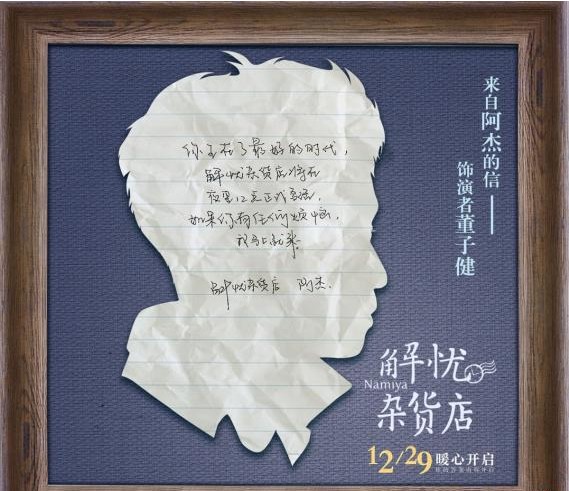 你生在了最好的时代，
解忧杂货店将在
夜里12点正式
如果你有任何烦恼，
我马上就来。
解忧杂货店 阿杰.
来自阿杰的信——
饰演者董子健
解忧
Namiya
杂货店
12/29 暖心开启